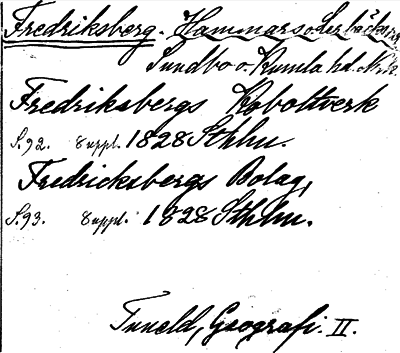 Fredriksberg. Hammars o. Lerbäcks
Sundbo o. Kumla hd. Nrk.
Fredriksbergs Koboltverk
S. 92. 8 uppl. 1828 Sthlm.
Fredricksbergs Bolag,
S. 93. 8 uppl. 1828 Sthlm.
Tuneld, Geografi. II.